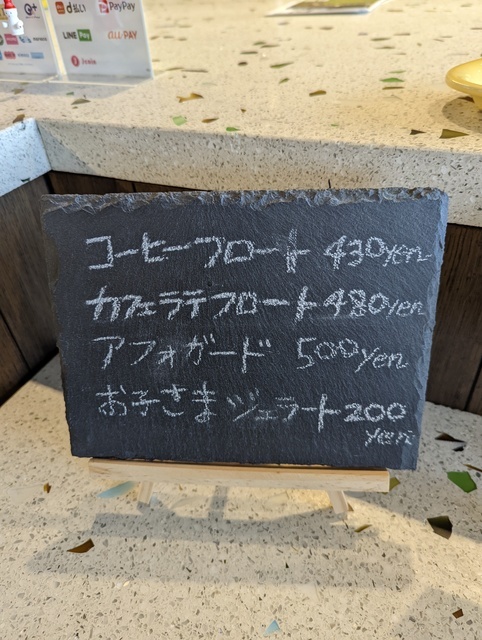 d払い
PayPay
LINE Pay
au PAY
コーヒーフロート 430yen
カフェラテフロート 480yen
アフォガード 500yen
お子さま ジェラート 200
yen